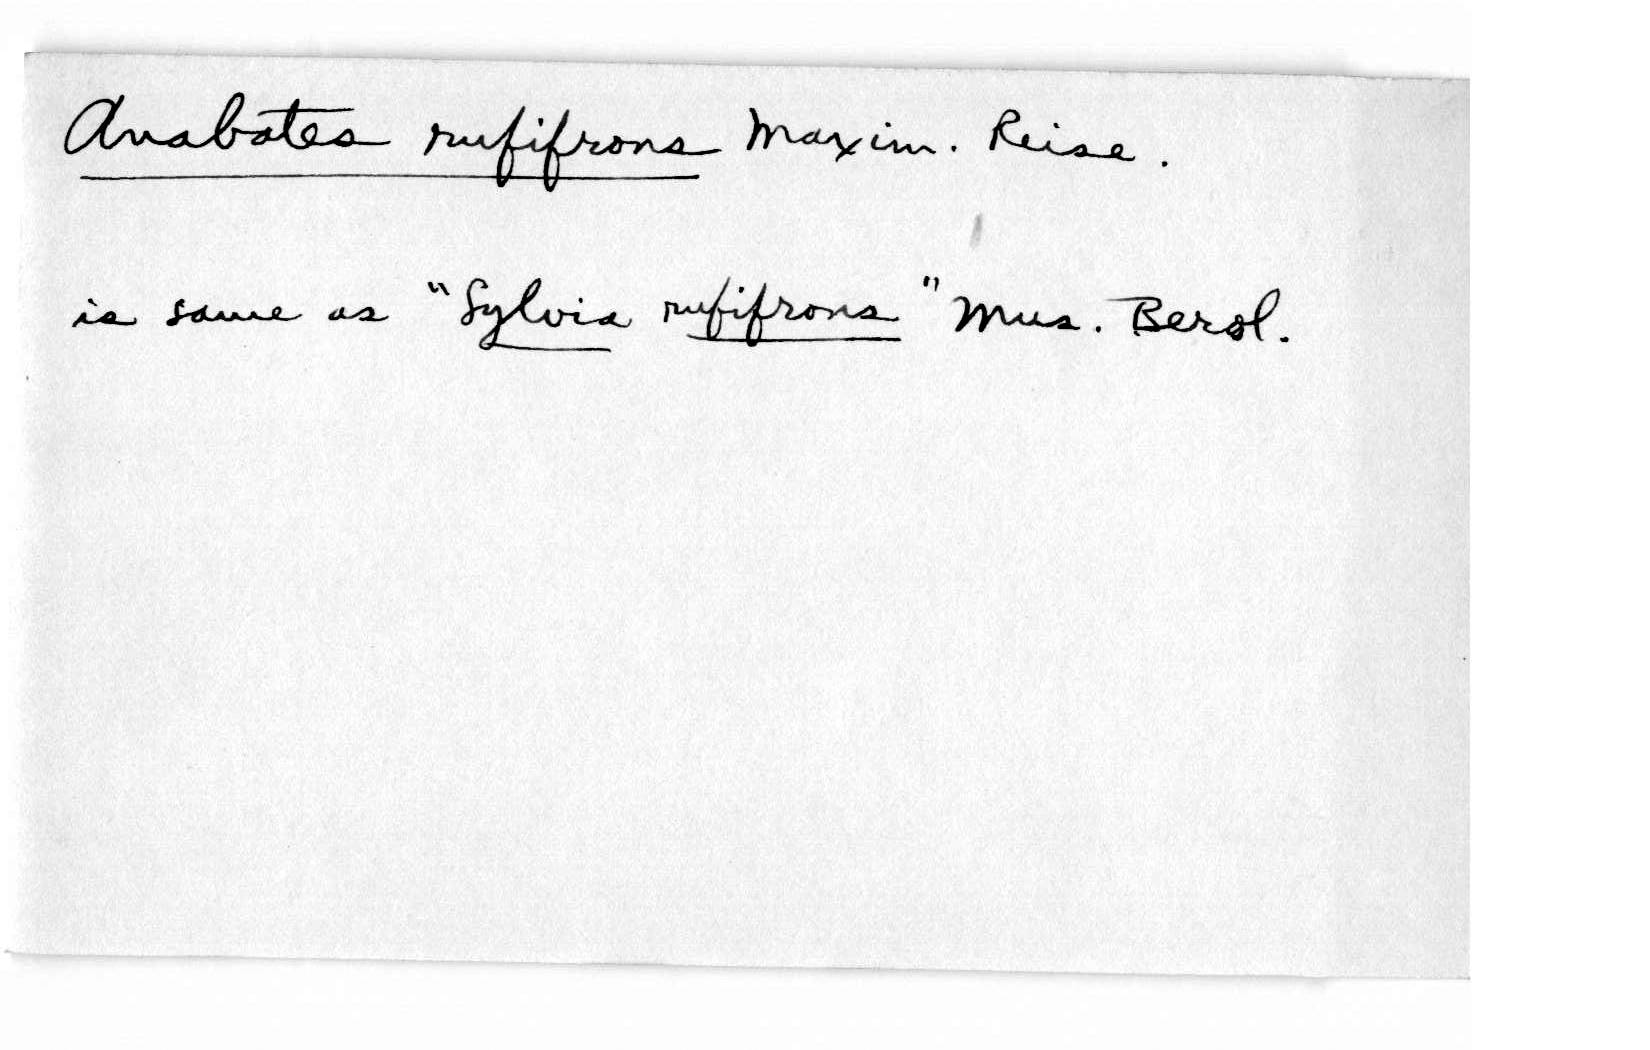 Anabates rufifrons Maxim. Reise.
is same as "Sylvia rufifrons" Mus. Berol.